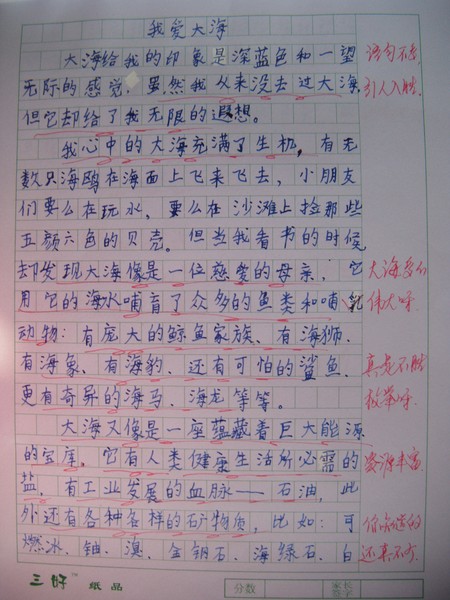 我爱大海
大海给我的印象是深蓝色和一望 语句不凡
无际的感觉。虽然我从来没去过大海, 引人入胜.
但它却给了我无限的遐想。
我心中的大海充满了生机，有无
数只海鸥在海面上飞来飞去，小朋友
们要么在玩水，要么在沙滩上捡那些
五颜六色的贝壳。但当我看书的时候
却发现大海像是一位慈爱的母亲，它 大海多么
用它的海水哺育了众多的鱼类和哺乳 伟大呀.
动物：有庞大的鲸鱼家族、有海狮、
有海象、有海豹、还有可怕的鲨鱼、 真是不胜
更有奇异的海马、海龙等等。 枚举呀.
大海又像是一座蕴藏着巨大能源
的宝库。它有人类健康生活所必需的 资源丰富
盐，有工业发展的血脉——石油，此
外还有各种各样的矿物质，比如：可 你知道的
燃冰、铀、溴、金钢石、海绿石、白 还真不少.
三好 纸品 分数